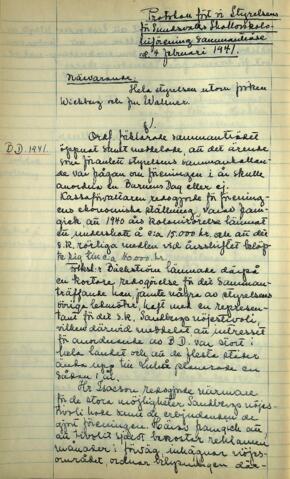 Protokoll fört vid Styrelsens
för Sundsvalls Skollovskolo-
niförening sammanträde
d. 4 februari 1941.
Närvarande:
Hela styrelsen utom fröken
Wiesburg och fru Wallner.
§1.
D.D. 1941.
Ordf. förklarade sammanträdet
öppnat samt meddelade, att det ärende
som föranlett styrelsens sammankallan-
de var frågan om föreningen i år skulle
anordna en Barnens Dag eller ej.
Kassaförvaltaren redogjorde för förening-
ens ekonomiska ställning. Därav fram-
gick att 1940 års kolonirörelse lämnat
ett underskott å c:a 15.000 kr. och att det
s.k. rörliga medlen vid årsskiftet belöp-
te sig till c:a 40.000 kr.
Folksk.l. Bäckström lämnade därpå
en kortare redogörelse för det samman-
träffande han jämte några av styrelsens
övriga ledamöter haft med en represen-
tant för det s.k. Sandbergs nöjestivoli,
vilken därvid meddelat att intresset
för anordnande av B.D. var stort i
hela landet och att de flesta städer
ända upp till Luleå planerade en
sådan i år.
Hr Isacson redogjorde närmare
för de stora möjligheter Sandbergs nöjes-
tivoli hade samt de erbjudanden de
gjort föreningen. Härav framgick att
att tivolit självt bekostar reklamen